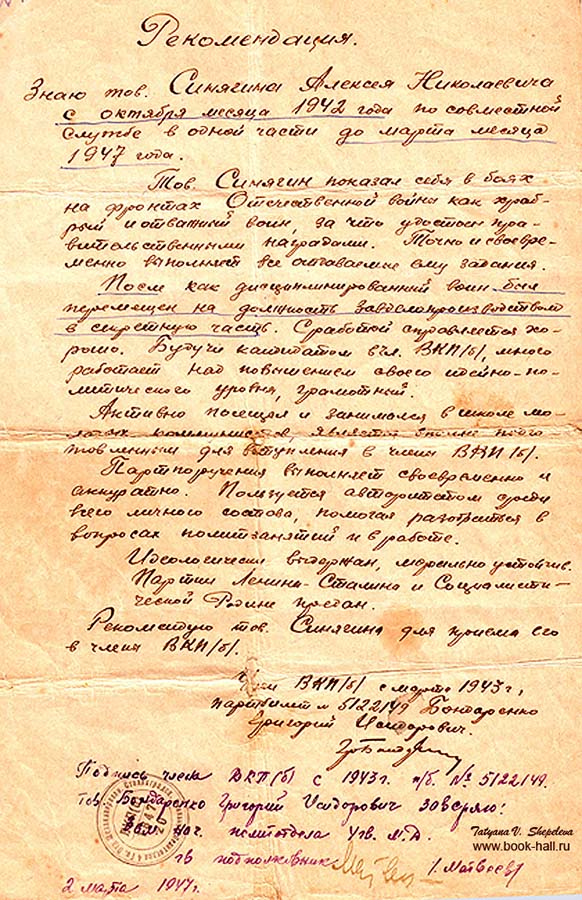 Рекомендация.
Знаю тов. Синягина Алексея Николаевича
с октября месяца 1942 года по совместной
службе в одной части до марта месяца
1947 года.
Тов. Синягин показал себя в боях
на фронтах Отечественной войны как храб-
рый и отважный воин, за что удостоен пра-
вительственными наградами. Точно и своевре-
менно выполняет все отдаваемые ему задания.
После как дисциплинированный воин был
перемещен на должность завделопроизводством
в секретную часть. С работой справляется хо-
рошо. Будучи кандидатом в чл. ВКП/б/, много
работает над повышением своего идейно-по-
литического уровня, грамотный.
Активно посещал и занимался в школе мо-
лодых коммунистов, является вполне подго-
товленным для вступления в члены ВКП/б/.
Партпоручения выполняет своевременно и
аккуратно. Пользуется авторитетом среди
всего личного состава, помогая разобраться в
вопросах политзанятий и в работе.
Идеологически выдержан, морально устойчив.
Партии Ленина-Сталина и Социалисти-
ческой Родине предан.
Рекомендую тов. Синягина для приема его
в члены ВКП/б/.
Член ВКП/б/ с марта 1943 г,
партбилет № 5122149 Бондаренко
Григорий Исидорович.
Подпись члена ВКП(б) с 1943г. п/б. № 5122149.
тов. Бондаренко Григорий Исидорович заверяю:
нач. политотдела Упр. М.Д.
гв подполковник /. Матвеев/
2 марта 1947г.
Tatyana V. Shepeleva
www.book-hall.ru